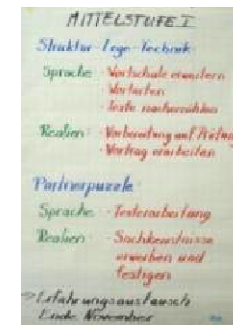 MITTELSTUFE I
Struktur-Lege-Technik
Sprache - Wortschatz erweitern
- Wortarten
- Texte nacherzählen
Realien - Vorbereitung auf Prüfung
- Vortrag erarbeiten
Partnerpuzzle
Sprache - Texterarbeitung
Realien - Sachkenntnisse
erwerben und
festigen
Erfahrungsaustausch
Ende November